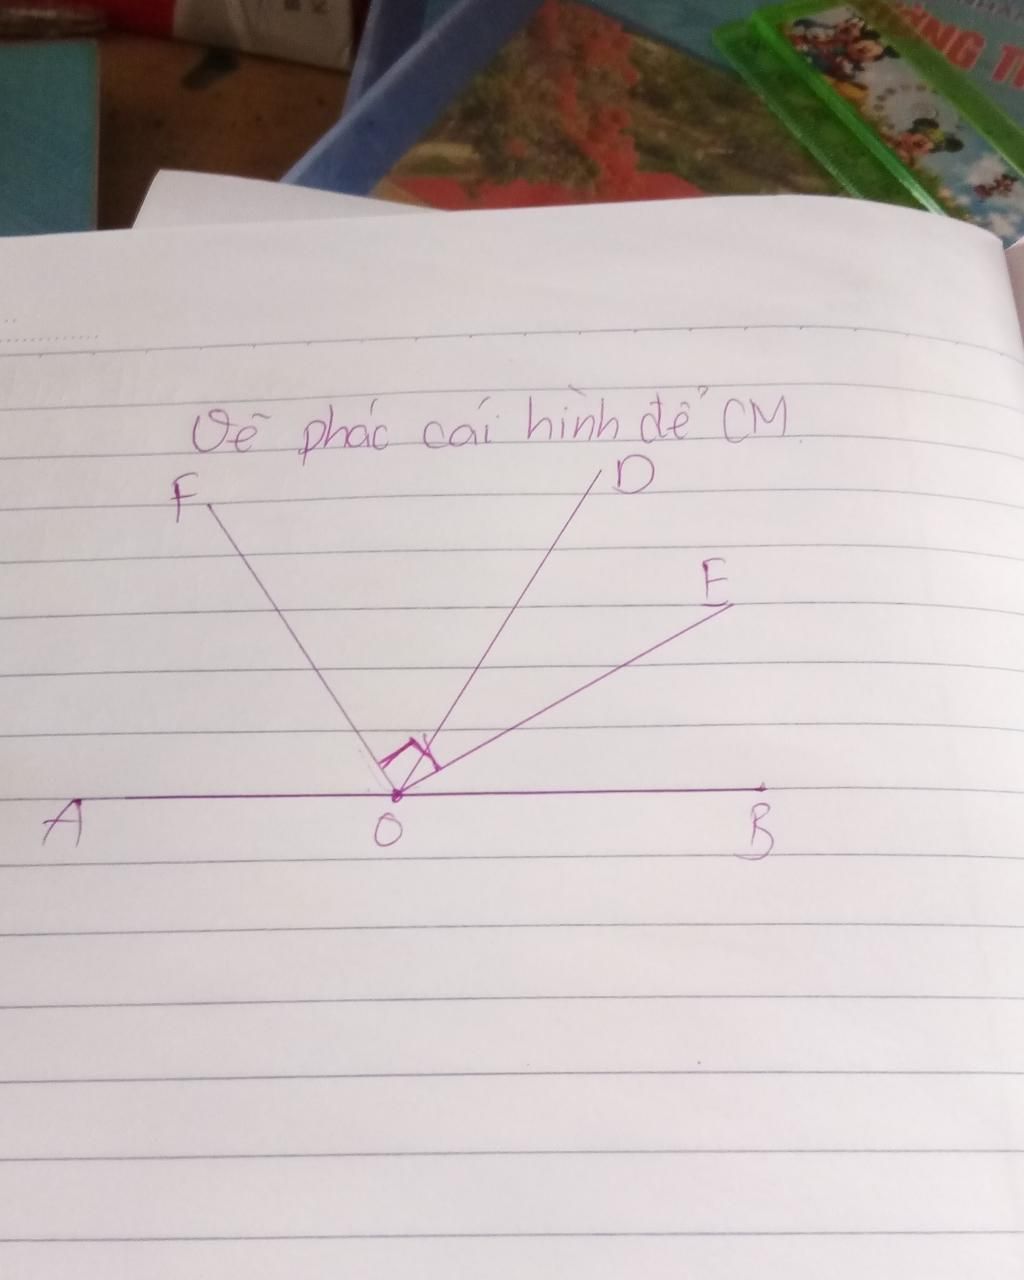 Vẽ phác cái hình để CM
F
D
E
A
O
B